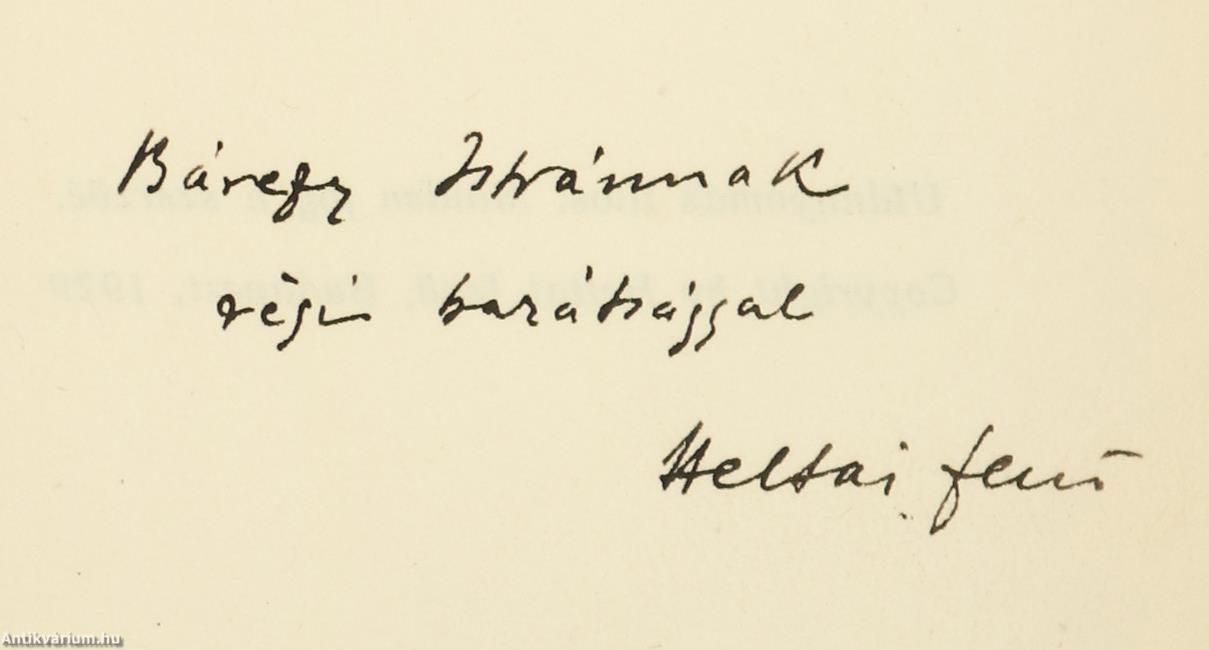 Bárczy Istvánnak
régi barátsággal
Heltai Jenő
Antikvárium.hu